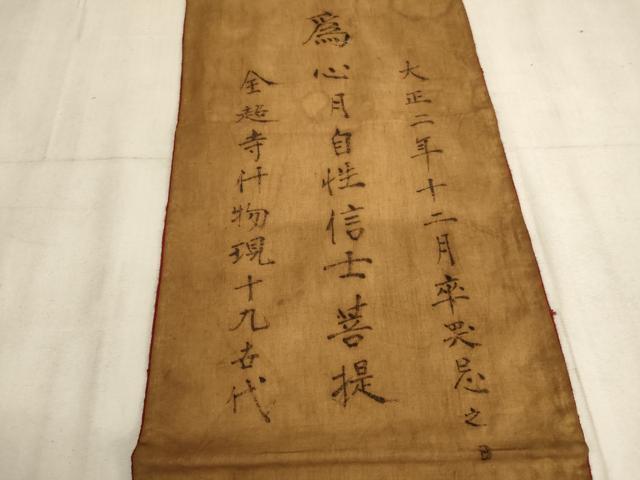 大正二年十二月卒哭忌之日
爲心月自性信士菩提
全超寺什物現十九世代